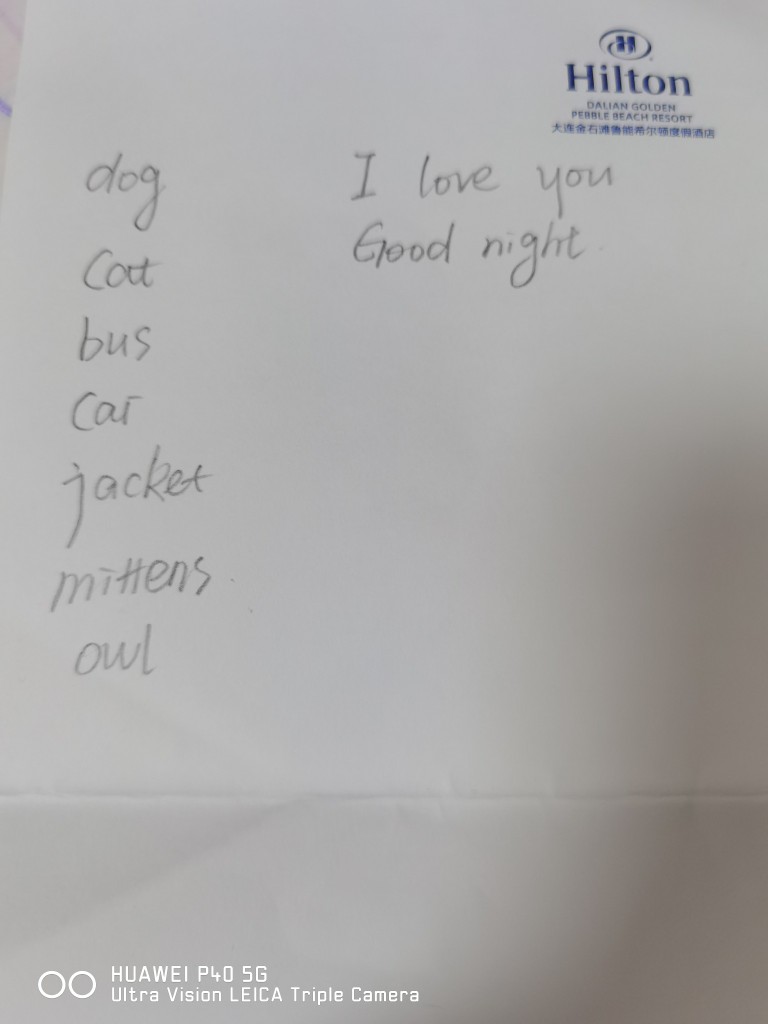 Hilton
DALIAN GOLDEN
PEBBLE BEACH RESORT
大连金石滩鲁能希尔顿度假酒店
dog
cat
bus
car
jacket
mittens
owl
I love you
Good night
HUAWEI P40 5G
Ultra Vision LEICA Triple Camera